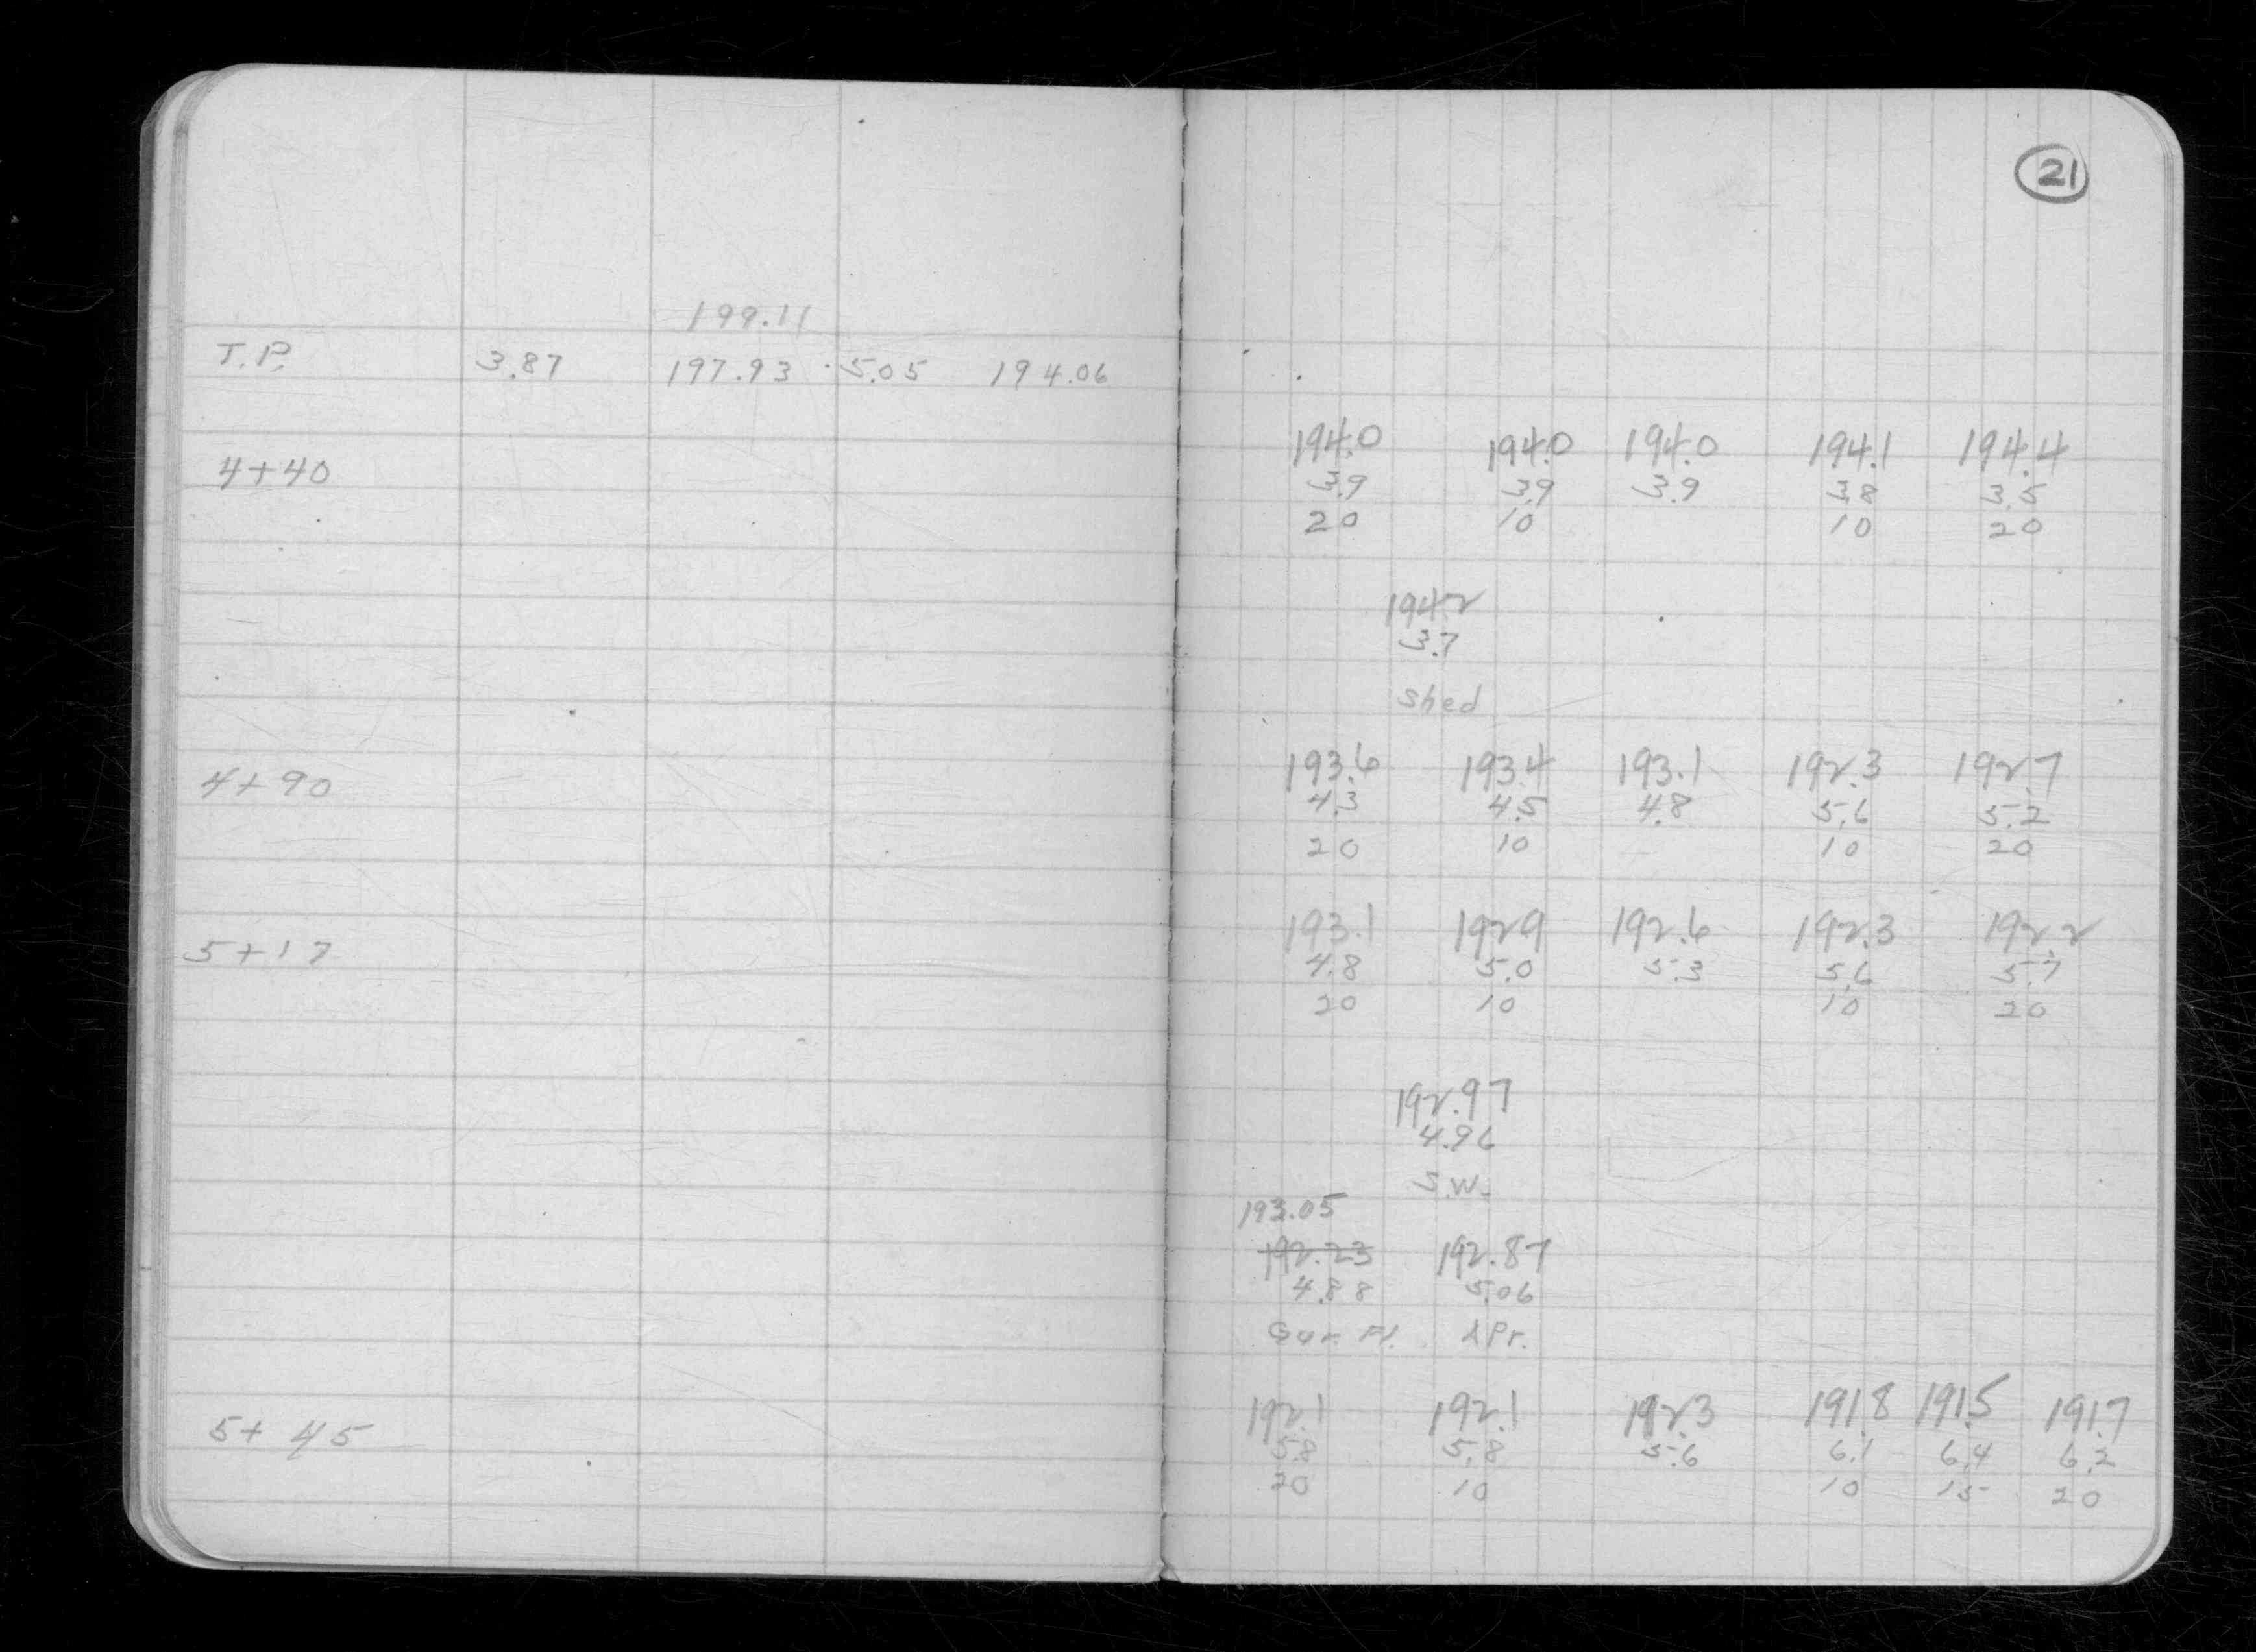 21
199.11
T.P. 3.87 197.93 5.05 194.06
194.0 194.0 194.0 194.1 194.4
4+40 3.9 3.9 3.9 3.8 3.5
20 10 10 20
194.2
3.7
shed
193.6 193.4 193.1 192.3 192.7
4+90 4.3 4.5 4.8 5.6 5.2
20 10 10 20
193.1 192.9 192.6 192.3 192.2
5+17 4.8 5.0 5.3 5.6 5.7
20 10 10 20
192.97
4.96
S.W.
193.05
192.23 192.87
4.88 5.06
Gar. Fl. DPr.
192.1 192.1 192.3 191.8 191.5 191.7
5+45 5.8 5.8 5.6 6.1 6.4 6.2
20 10 10 15 20